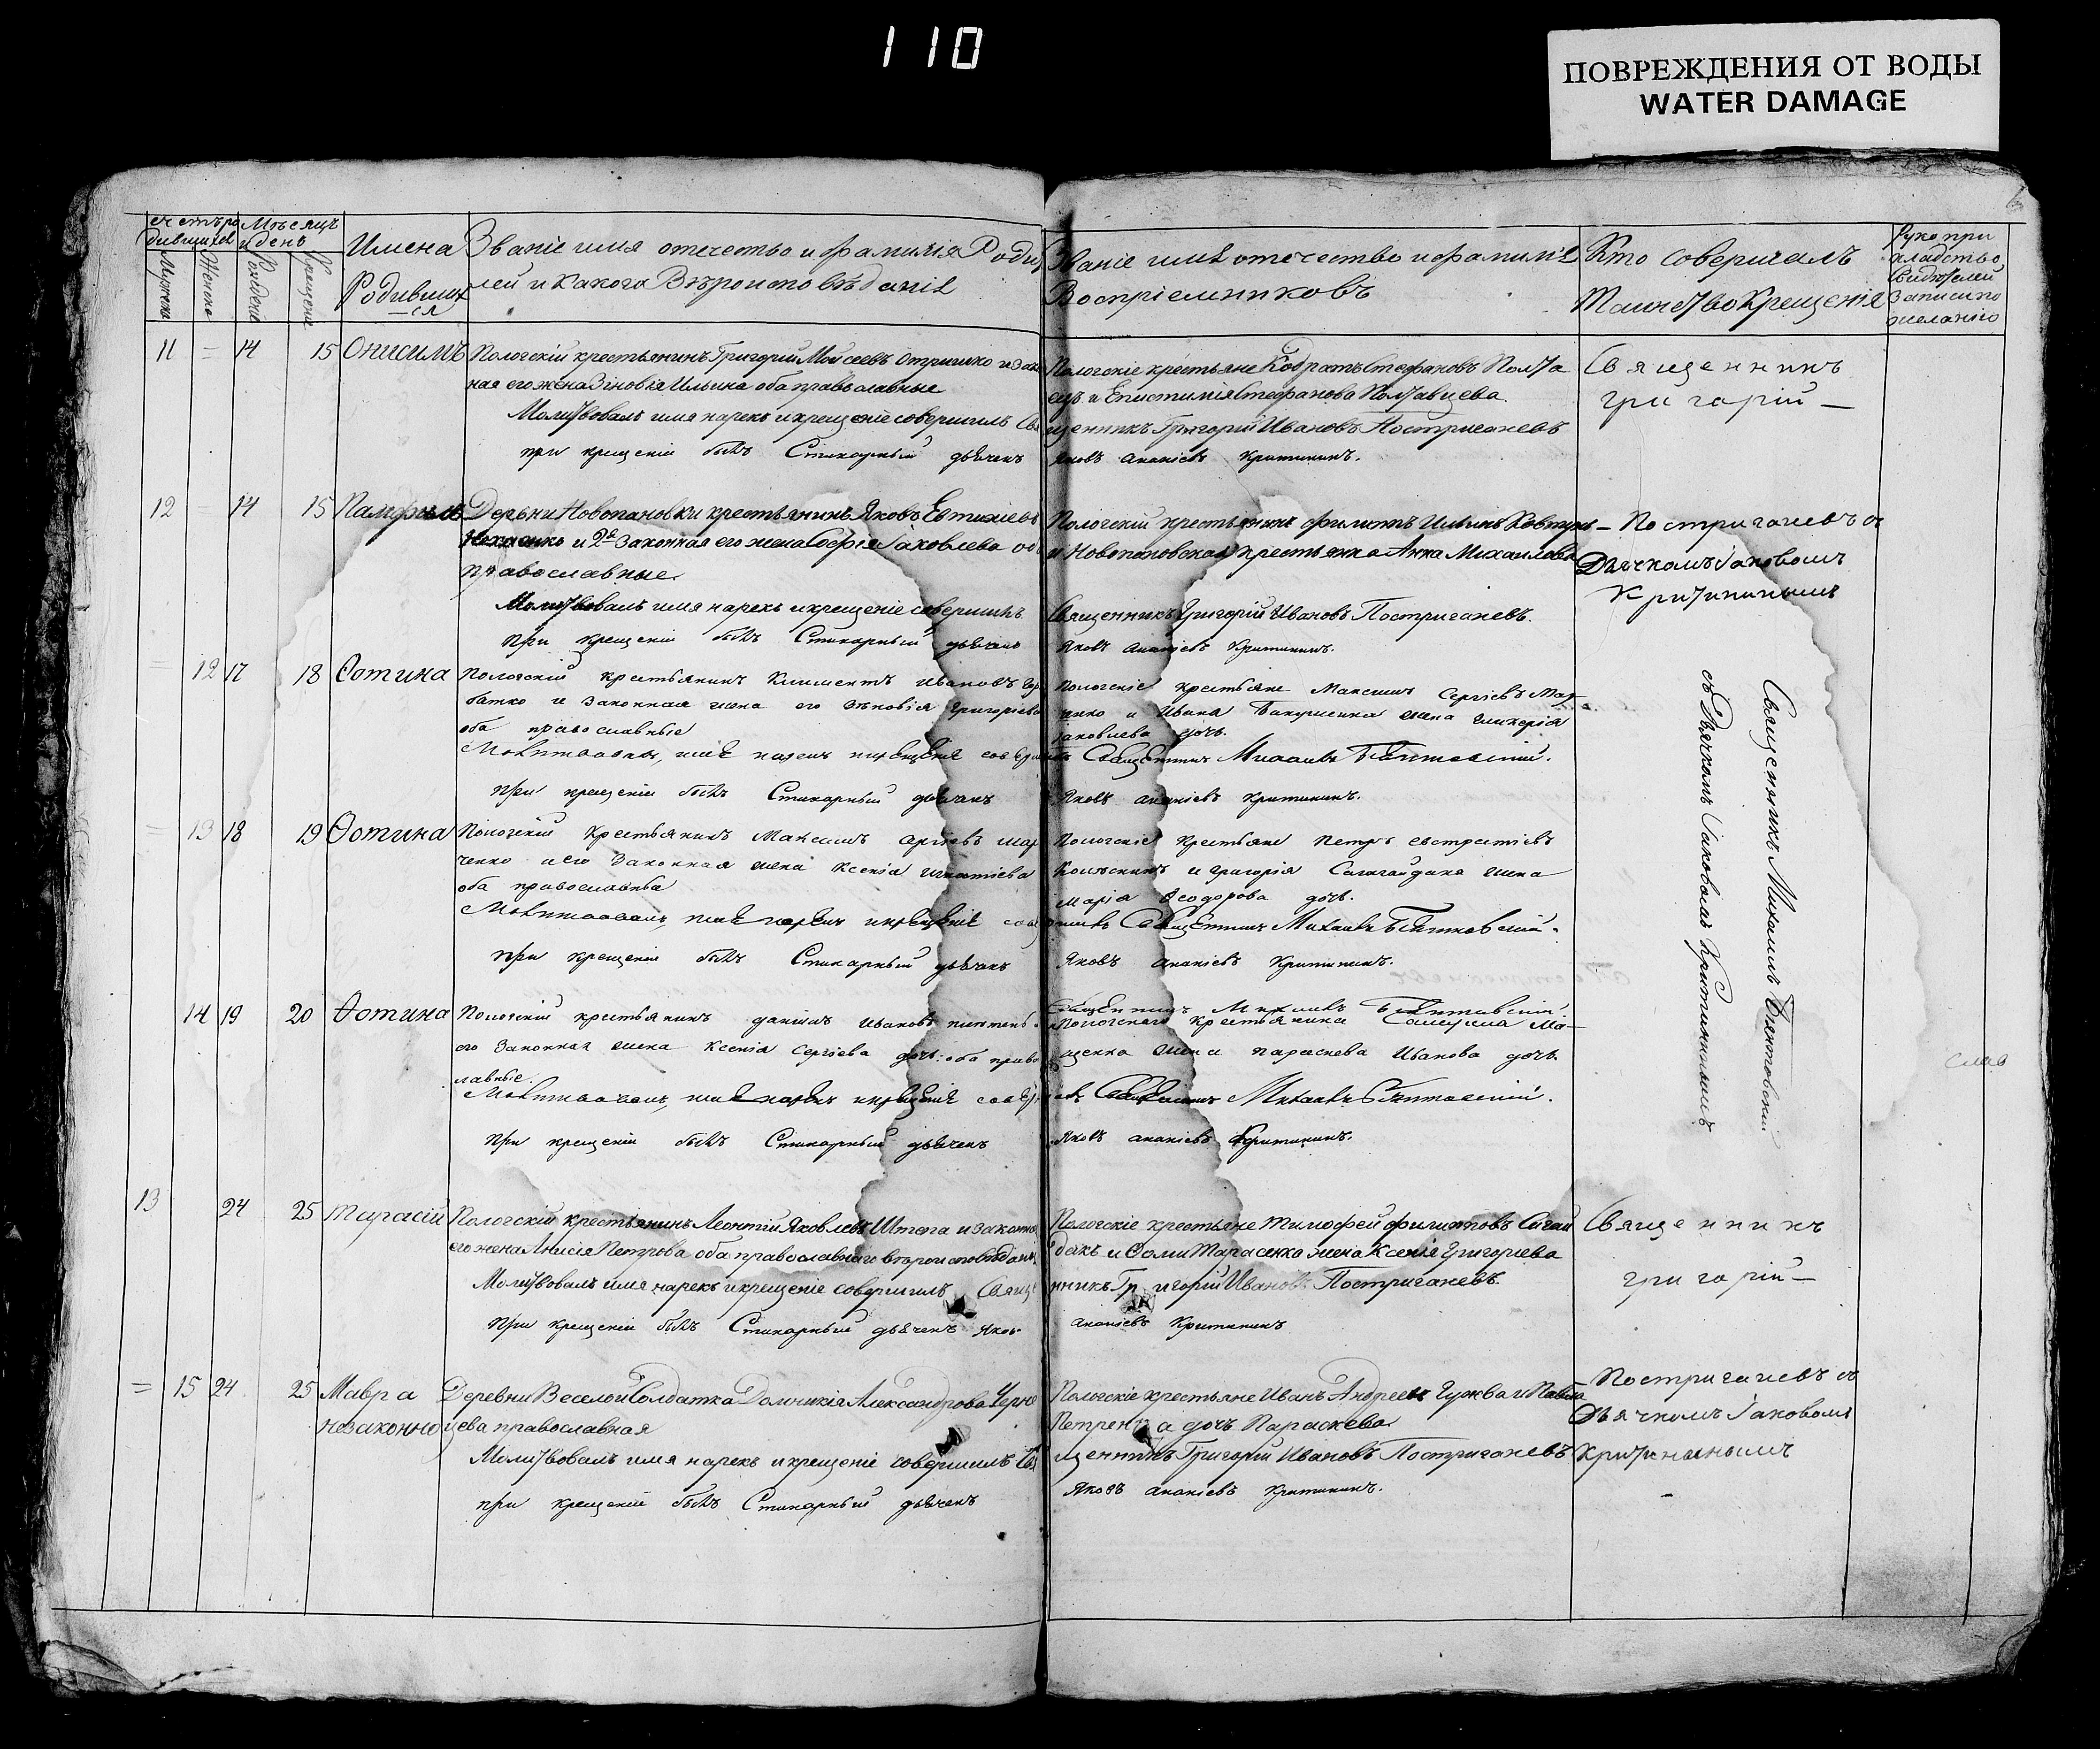 110
ПОВРЕЖДЕНИЯ ОТ ВОДЫ
WATER DAMAGE
Мѣсяцъ
и день
Имена
Родивших
ся
Званіе имя отечество и фамилія Роди
лей и какога Вѣроисповѣданія
Званіе имя отечество и фамилія
Воспріемниковъ
Кто совершалъ
Таинство Крещенія
Рукопри
кладство
свидѣтелей
записи по
желанію
Мужеска
Женска
Рожденіе
Крещеніе
11 = 14 15 Онисимъ
Пологскій крестьянинъ Григорій Моисеевъ Отришко и зако
ная его жена Зіновія Ильина оба православные
Молитвовалъ имя нарекъ и крещеніе совершилъ Свя
при крещеніи былъ Стихарный дьячекъ
Пологскіе крестьяне Кодратъ Стефановъ Полта
ецъ и Епистимія Стефанова Полтавцева.
щенникъ Григорій Ивановъ Постригачевъ
Яковъ Ананіевъ Критининъ.
Священникъ
Григорій —
12 = 14 15 Памфилъ
Деревни Новопановки крестьянинъ Яковъ Евтихіевъ
и 2я законная его жена Софія Іаковлева об
православные
Молитвовалъ имя нарекъ и крещеніе совершилъ
при крещеніи былъ Стихарный дьячекъ
Пологскій крестьянинъ Филиппъ Ильинъ Ковтунъ
и Новопановская крестьянка Анна Михаилова
Священникъ Григорій Ивановъ Постригачевъ.
Яковъ Ананіевъ Критининъ.
— Постригачевъ съ
Дьячкомъ Іаковомъ
Критининымъ
= 12 17 18 Ѳотина
Пологскій крестьянинъ Климентъ Ивановъ Гор
батко и законная жена его Зѣновія Григоріева
оба православные
Молитвовалъ, имя нарекъ и крещеніе соверши
при крещеніи былъ Стихарный дьячекъ
Пологскіе крестьяне Максимъ Сергіевъ Мар
ченко и Ивана жена Гликерія
Іаковлева дочь.
лъ Священникъ Михаилъ Бѣлинтовскій.
Яковъ Ананіевъ Критининъ.
Священникъ Михаилъ
съ Дьячкомъ Іаковомъ Критининымъ
= 13 18 19 Ѳотина
Пологскій крестьянинъ Максимъ Сергіевъ Мар
ченко и его законная жена Ксенія Игнатіева
оба православные
Молитвовалъ, имя нарекъ и крещеніе сове
при крещеніи былъ Стихарный дьячекъ
Пологскіе крестьяне Петръ Евстратіевъ
и Григорія Салагайдака жена
Марія Ѳеодорова дочь.
ршилъ Священникъ Михаилъ
Яковъ Ананіевъ Критининъ.
14 19 20 Ѳотина
Пологскій крестьянинъ Даніилъ Ивановъ
его законная жена Ксенія Сергіева дочь: оба право
славные.
Молитвовалъ, имя нарекъ и крещеніе совер
при крещеніи былъ Стихарный дьячекъ
Священникъ Михаилъ
Пологскаго крестьянина Самуила Ма—
щенка жена Параскева Иванова дочь.
Священникъ Михаилъ
Яковъ Ананіевъ Критининъ.
13 24 25 Тарасій
Пологскій крестьянинъ Леонтій Яковлевъ Штепа и законна
его жена Анисія Петрова оба православнаго вѣроисповѣдані
Молитвовалъ имя нарекъ и крещеніе совершилъ Свяще
при крещеніи былъ Стихарный дьячекъ Яков
Пологскіе крестьяне Тимофей Филипповъ Сагай
дакъ и Ѳомы Тарасенко жена Ксенія Григорьева
нникъ Григорій Ивановъ Постригачевъ.
Ананіевъ Критининъ
Священникъ
Григорій —
= 15 24 25 Мавра
незаконно
Деревни Веселой Солдатка Домникія Александрова Черне
цева православная
Молитвовалъ имя нарекъ и крещеніе совершилъ Свя
при крещеніи былъ Стихарный дьячекъ
Пологскіе крестьяне Иванъ Андреевъ Гужва и Павла
Петренка дочь Параскева
щенникъ Григорій Ивановъ Постригачевъ
Яковъ Ананіевъ Критининъ.
Постригачевъ съ
Дьячкомъ Іаковомъ
Критининымъ